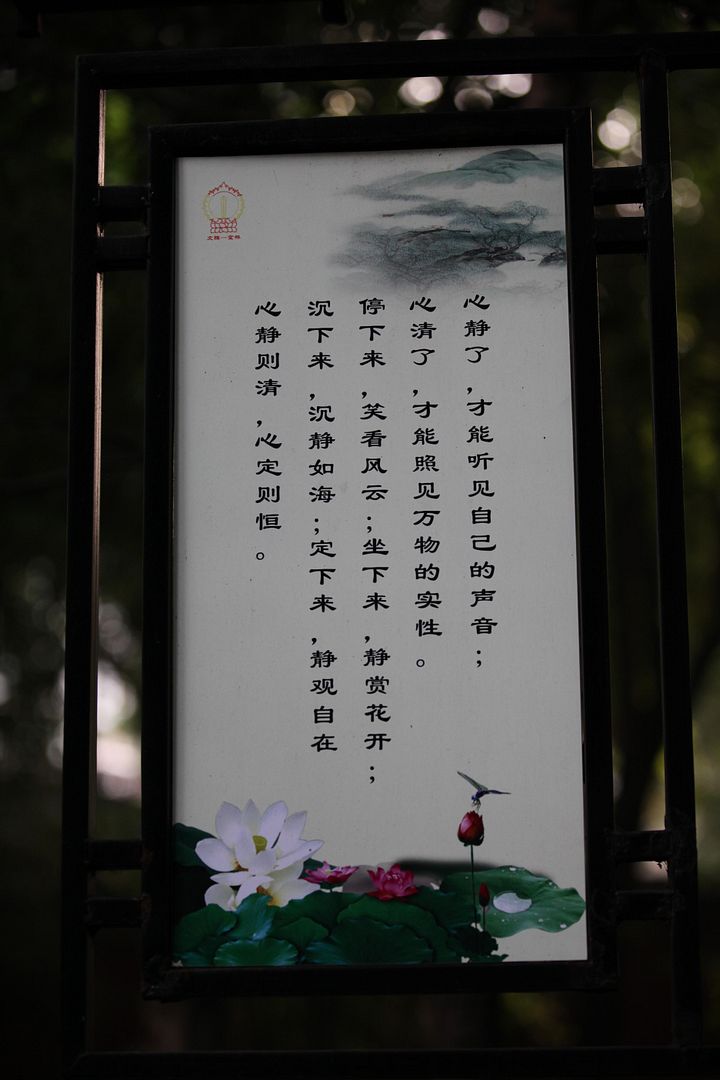 心静了，才能听见自己的声音；
心清了，才能照见万物的实性。
停下来，笑看风云；坐下来，静赏花开；
沉下来，沉静如海；定下来，静观自在
心静则清，心定则恒。